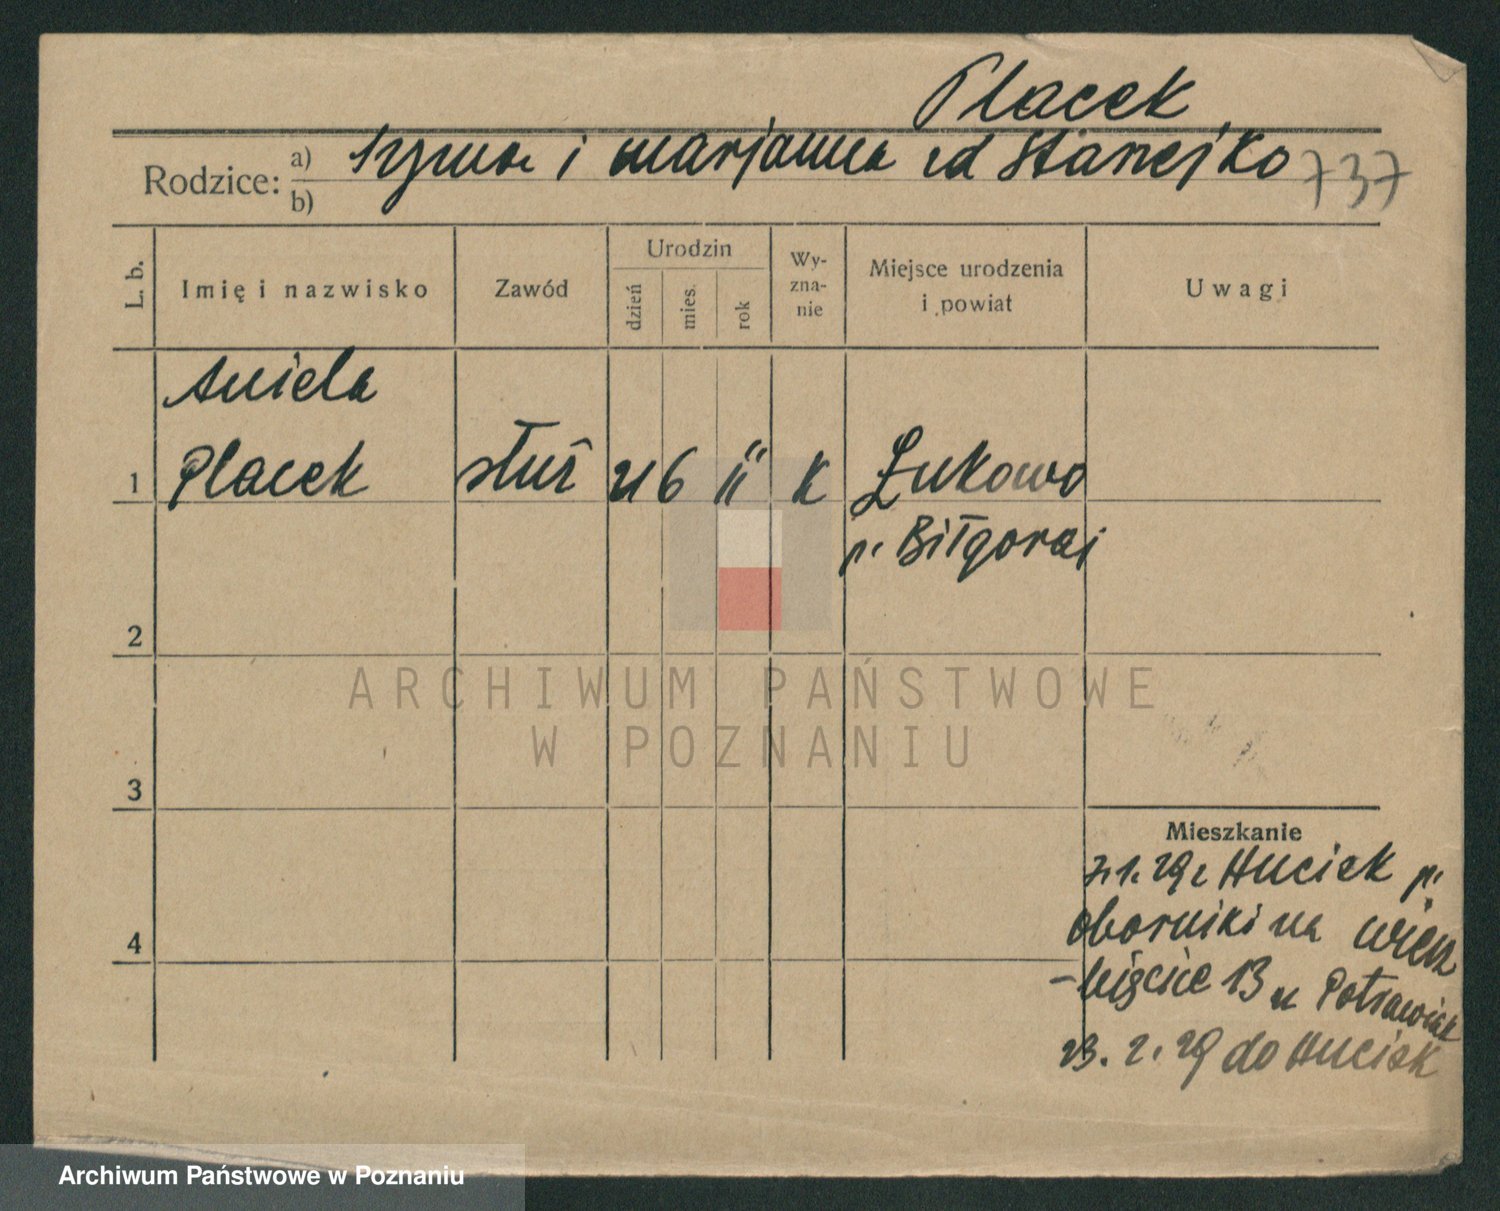 Placek
Rodzice: a) Szymon i Marjanna zd Stanejko 737
b)
L. b. Imię i nazwisko Zawód Urodzin dzień mies. rok Wy-zna-nie Miejsce urodzenia i powiat Uwagi
Aniela
1 Placek służ 21 6 11 K Łukowo
p. Biłgoraj
2
ARCHIWUM PAŃSTWOWE
W POZNANIU
3
Mieszkanie
7.1.29 z Hucisk p.
Oborniki na Wierz
4
-bięcice 13 u Potrawiak
23. 2. 29 do Hucisk
Archiwum Państwowe w Poznaniu